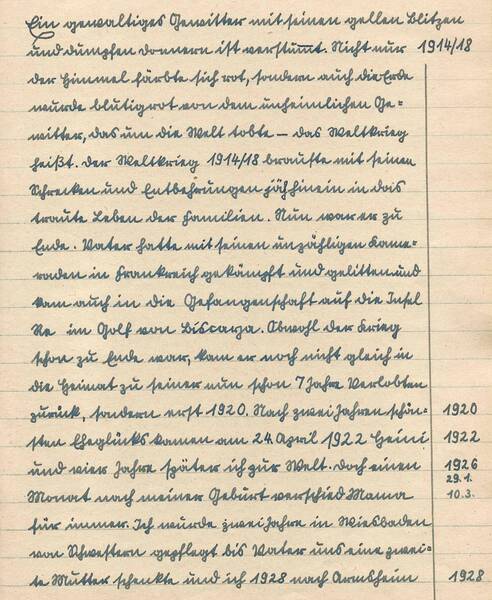 Ein gewaltiges Gewitter mit seinen gellen Blitzen
und dumpfen Donnern ist verstummt. Nicht nur 1914/18
der Himmel färbte sich rot, sondern auch die Erde
wurde blutigrot von dem unheimlichen Ge=
witter, das um die Welt tobte – das Weltkrieg
heißt. Der Weltkrieg 1914/18 brauste mit seinen
Schrecken und Entbehrungen jäh hinein in das
traute Leben der Familien. Nun war er zu
Ende. Vater hatte mit seinen unzähligen Kame=
raden in Frankreich gekämpft und gelitten und
kam auch in die Gefangenschaft auf die Insel
Re im Golf von Biscaya. Obwohl der Krieg
schon zu Ende war, kam er noch nicht gleich in
die Heimat zu seiner nun schon 7 Jahre Verlobten
zurück, sondern erst 1920. Nach zwei Jahren schön= 1920
sten Eheglücks kamen am 24. April 1922 Heini 1922
und vier Jahre später ich zur Welt. Doch einen 1926
29.1.
Monat nach meiner Geburt verschied Mama 10.3.
für immer. Ich wurde zwei Jahre in Wiesbaden
von Schwestern gepflegt bis Vater uns eine zwei=
te Mutter schenkte und ich 1928 nach Armsheim 1928